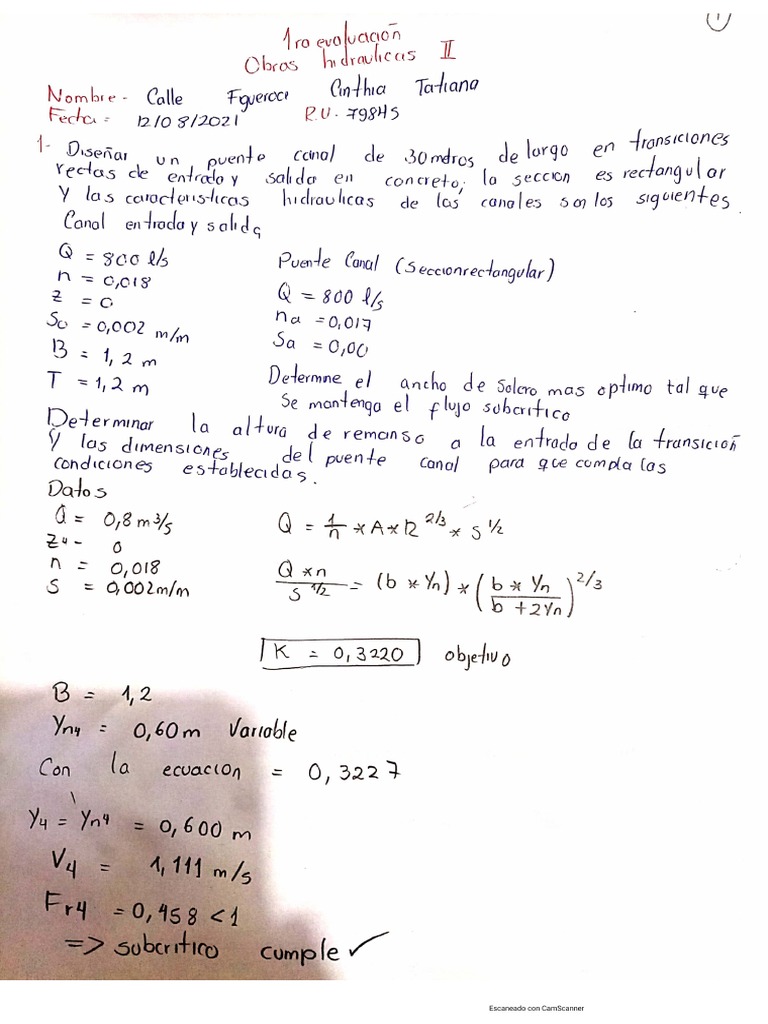 1
1ra evaluación
Obras hidraulicas II
Nombre - Calle Figueroa Cinthia Tatiana
Fecha: 12/08/2021 R.U. 79845
1- Diseñar un puente canal de 30 metros de largo en transiciones
rectas de entrada y salida en concreto; la seccion es rectangular
Y las caracteristicas hidraulicas de las canales son los siguientes
Canal entrada y salida
Q = 800 l/s
n = 0,018
z = 0
So = 0,002 m/m
B = 1,2 m
T = 1,2 m
Puente Canal (Seccion rectangular)
Q = 800 l/s
na = 0,017
Sa = 0,00
Determine el ancho de Solera mas optimo tal que
Se mantenga el flujo subcritico
Determinar la altura de remanso a la entrada de la transición
Y las dimensiones del puente canal para que cumpla las
condiciones establecidas.
Datos
Q = 0,8 m³/s
Z4 - 0
n = 0,018
S = 0,002 m/m
Q = 1/n * A * R^2/3 * S^1/2
Q * n / S^1/2 = (b * Yn) * (b * Yn / b + 2Yn)^2/3
K = 0,3220 objetivo
B = 1,2
Yn4 = 0,60 m Variable
Con la ecuacion = 0,3227
Y4 = Yn4 = 0,600 m
V4 = 1,111 m/s
Fr4 = 0,458 < 1
=> subcritico cumple ✓
Escaneado con CamScanner